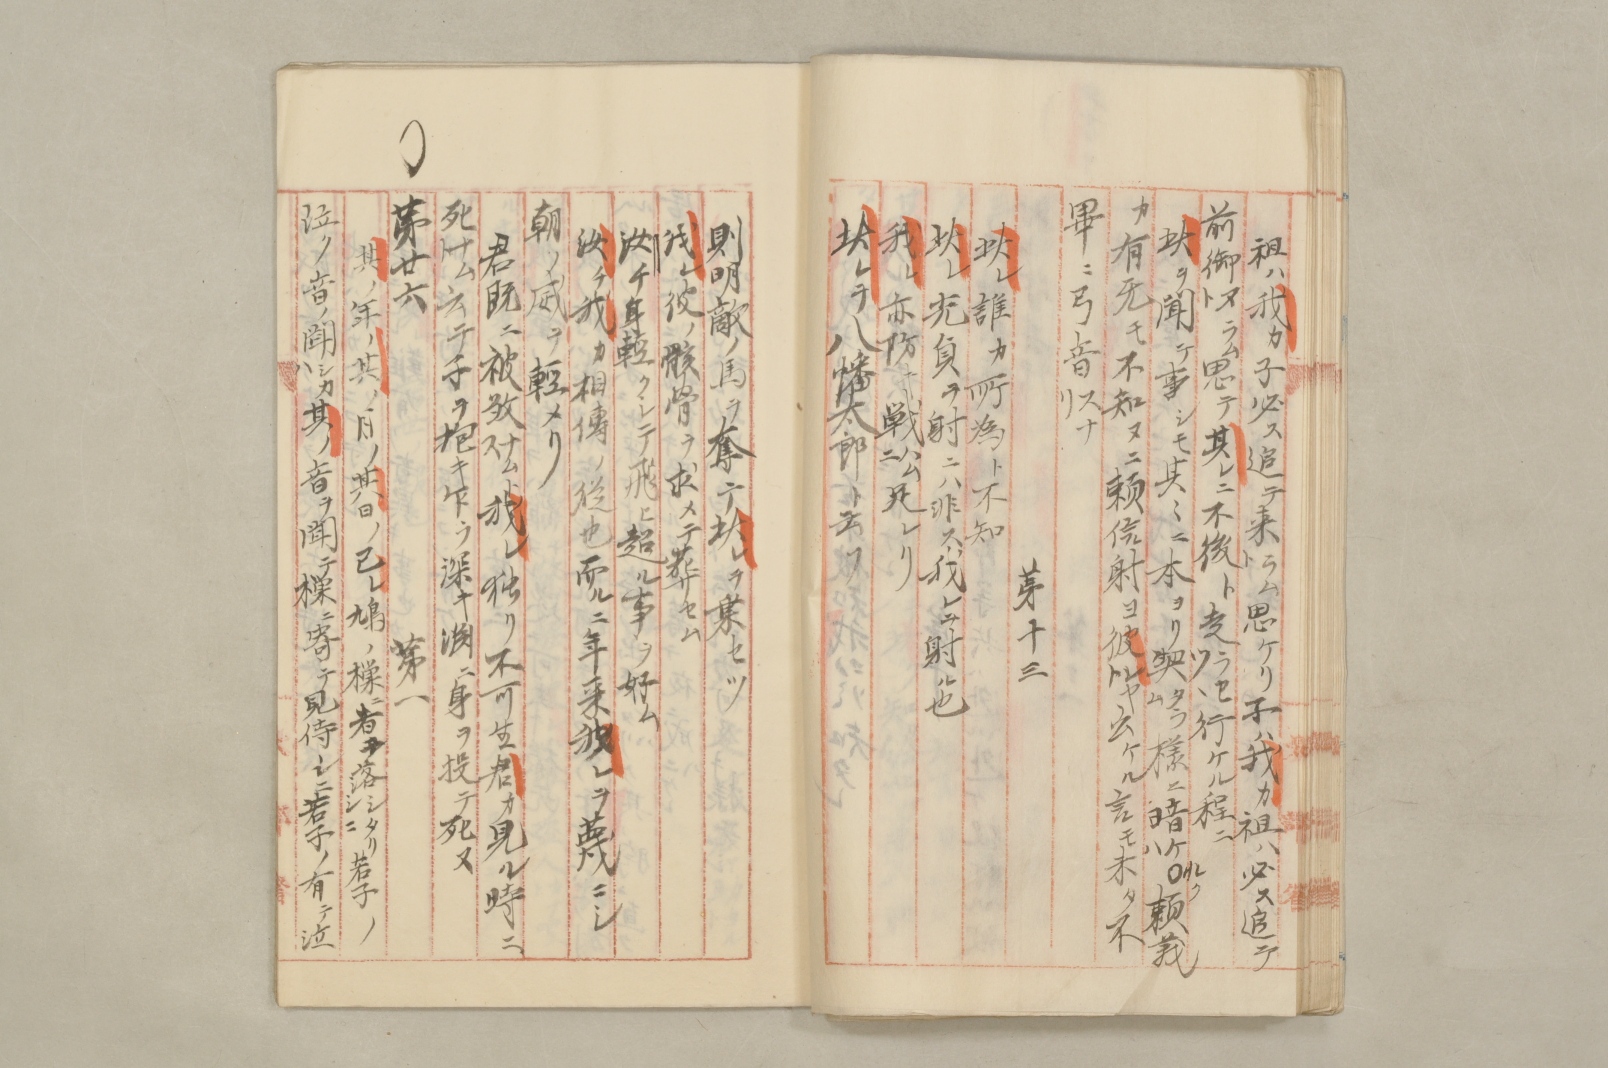 祖ハ我カ子必ス追テ来ラムト思ケリ子ハ我カ祖ハ必ス追テ
前ニ御ヌラムト思テ其レニ不後ト走ラセツヽ行ケル程ニ
此ヲ聞ケハ事シモ其ミニ本ヨリ契タラム様ニ暗ケレハ頼義
カ有无モ不知ヌニ頼信射ヨ彼レヤト云ケル言モ未タ不
畢ニ弓音スナリ
第十三
此レ誰カ所為ト不知
此レ充負ヲ射ニハ非ス我レヲ射ル也
我レ亦防キ戦ハムニ死レリ
此レヲ八幡太郎ト云フ
則明敵ノ馬ヲ奪テ此レヲ乗セツ
我レ彼ノ骸骨ヲ求メテ葬セム
汝チ年輕クシテ飛ヒ超ル事ヲ好ム
汝チ我カ相傳ノ従也而ルニ年来我レヲ蔑ニシ
朝ノ威ヲ輕メリ
君既ニ被敚ナムトス我レ独リ不可生君カ見ル時ニ
死ナムト云テ子ヲ抱キ乍ラ深キ渕ニ身ヲ投テ死ヌ
第廿六
第一
其ノ年ノ其ノ月ノ其日ノ己レ鳩ノ樔ニ者ヲ落シタリシニ若子ノ
泣ク音ノ聞ハシカ其ノ音ヲ聞テ樔ニ寄テ見侍シニ若子ノ有テ泣